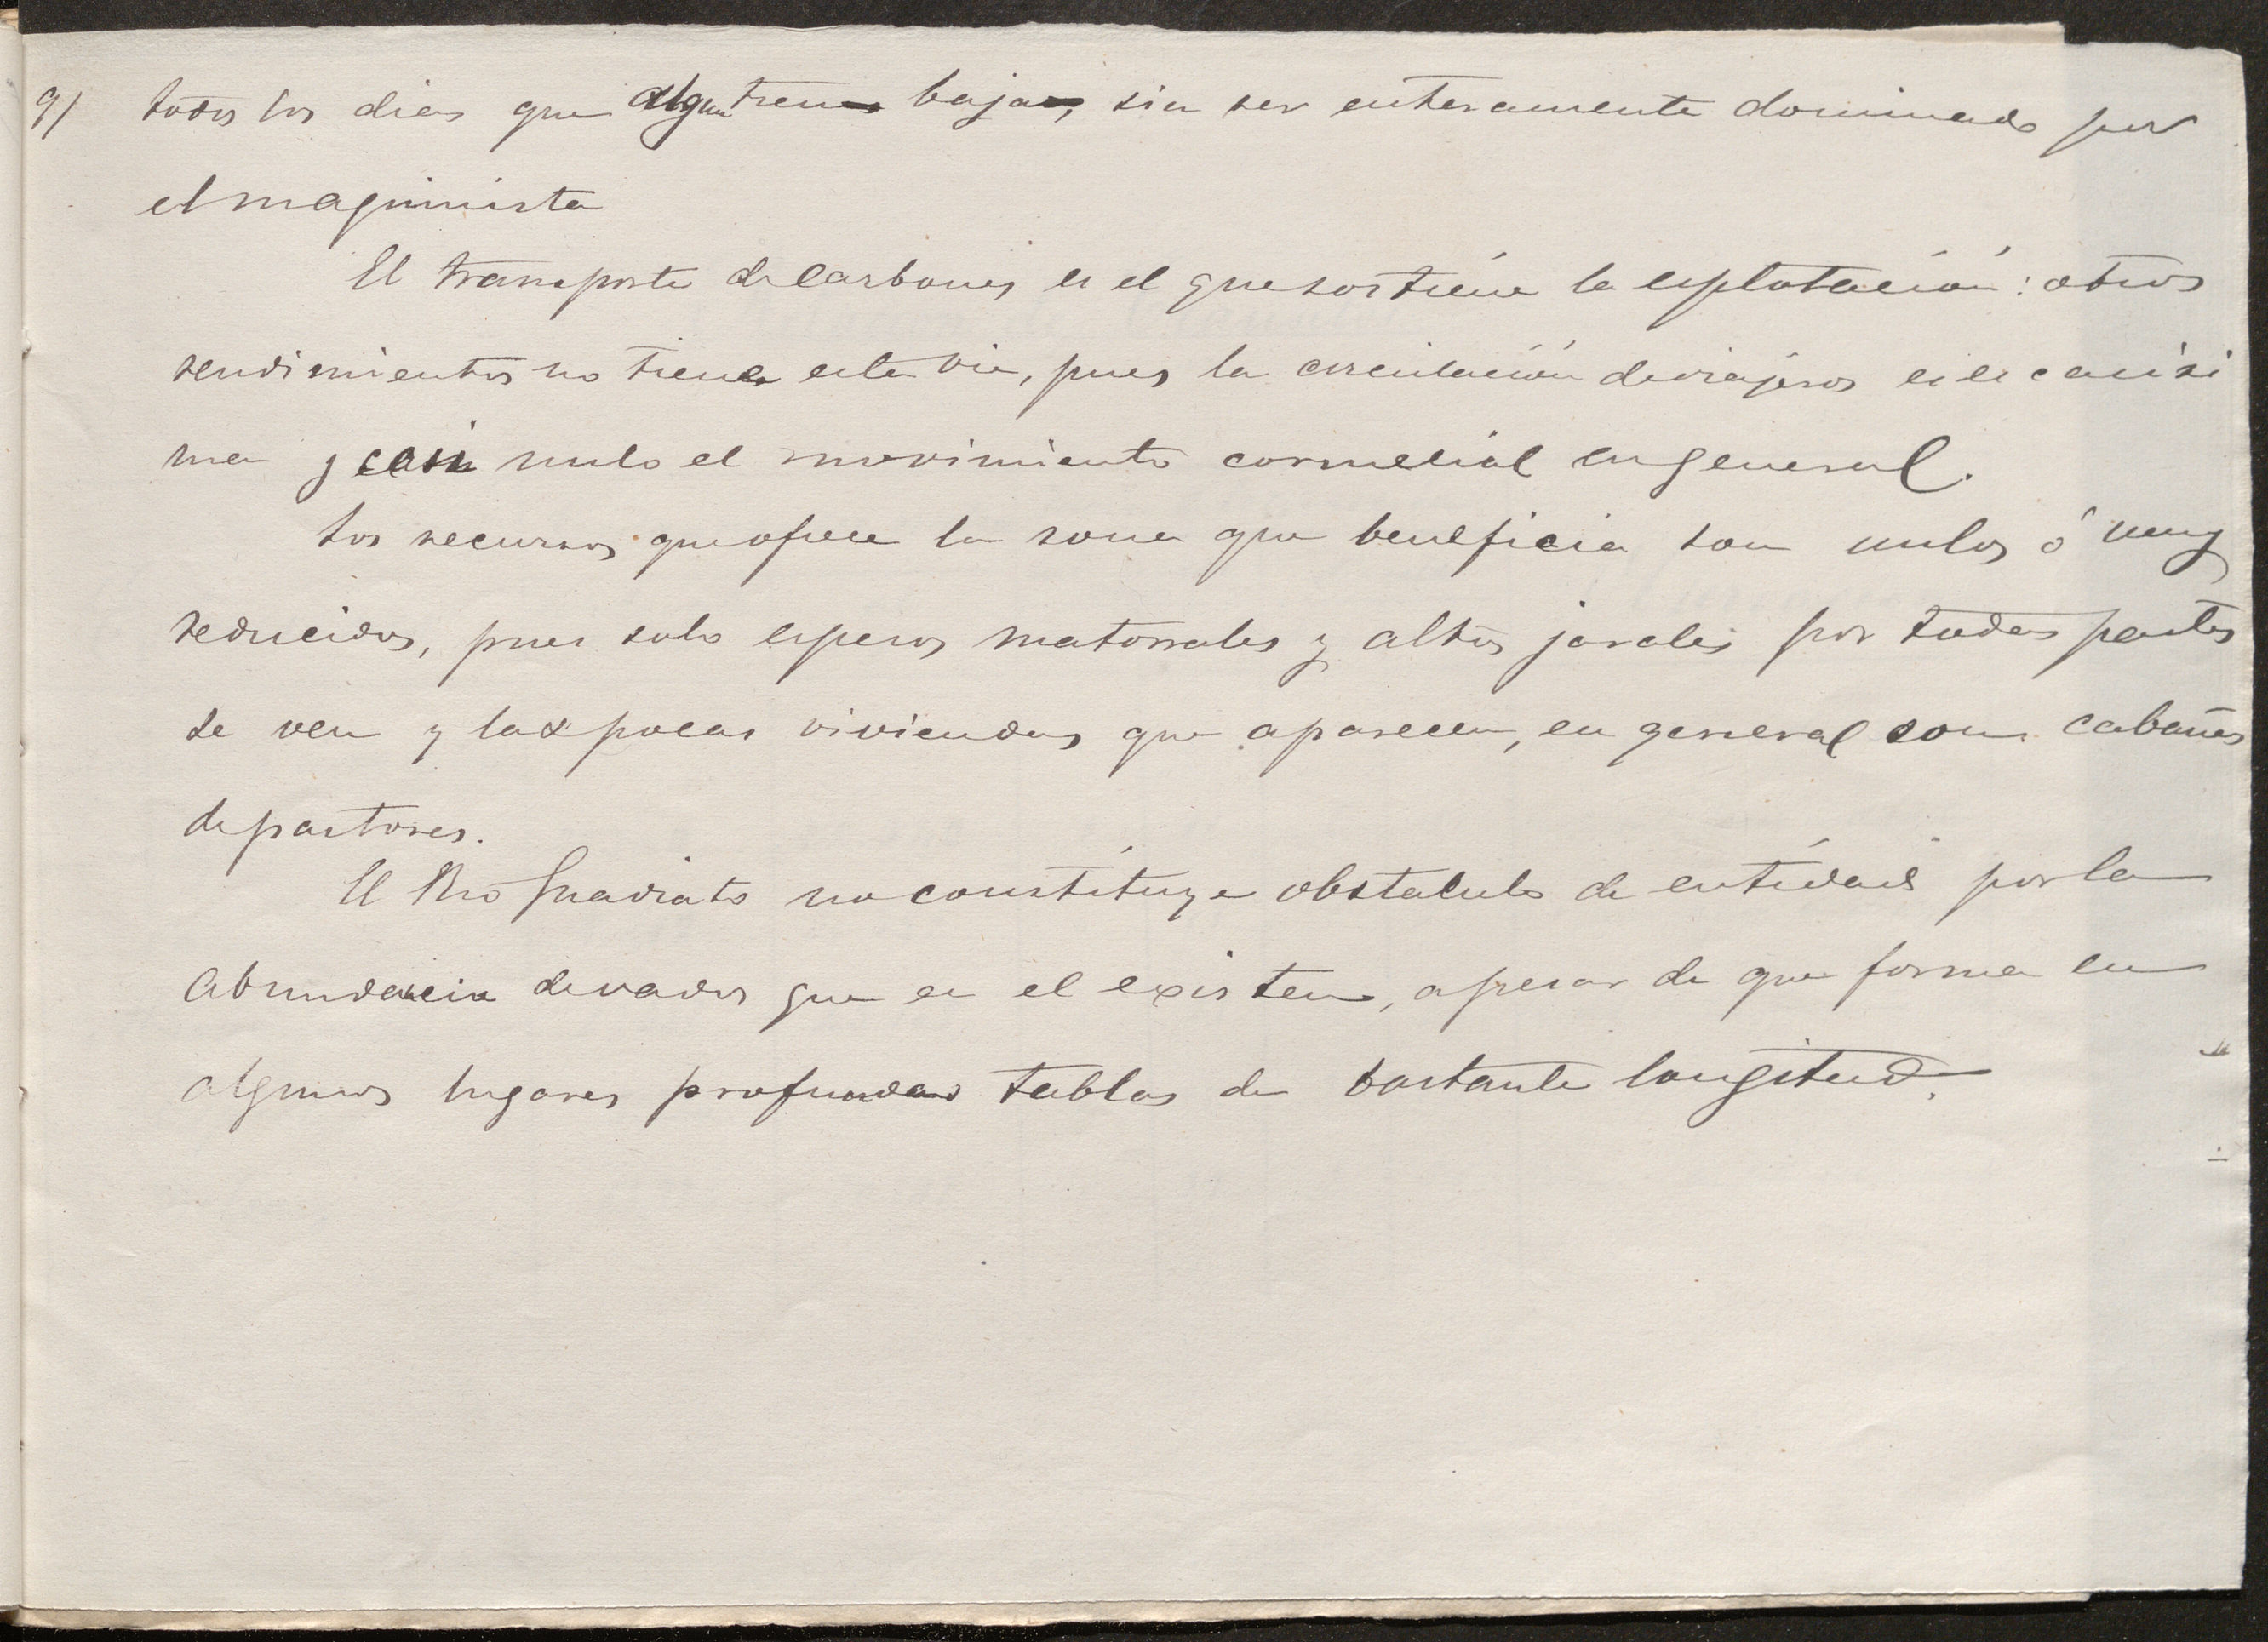 9/ todos los dias que algun tren baja, sin ser enteramente dominado por
el maquinista
El transporte de carbones es el que sostiene la esplotación: otros
rendimientos no tiene esta via, pues la circulación de viajeros es escasisi
ma y casi nulo el movimiento comercial en general.
Los recursos que ofrece la zona que beneficia son nulos ó muy
reducidos, pues solo espesos matorrales y altos jarales por todas partes
se ven y las pocas viviendas que aparecen, en general son cabañas
de pastores.
El Rio Guadiato no constituye obstaculo de entidad por la
abundancia de vados que en el existen, apesar de que forma en
algunos lugares profundas tablas de bastante longitud.